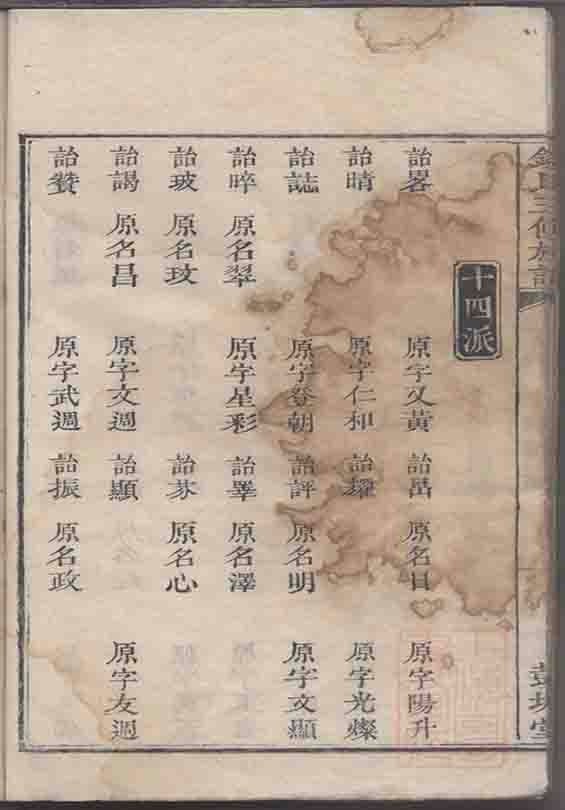 十四派
詒畧 原字又黃 詒喦 原名日 原字陽升
詒晴 原字仁和 詒燿 原字光燦
詒誌 原字登朝 詒評 原名明 原字文顯
詒晬 原名翠 原字星彩 詒睪 原名澤
詒玻 原名玟 詒芯 原名心
詒謁 原名昌 原字文週 詒顯 原字友週
詒贊 原字武週 詒振 原名政